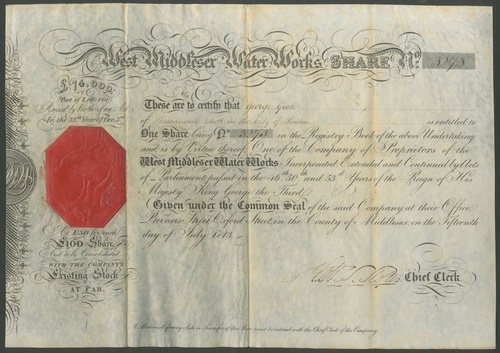 West Middlesex Water Works. SHARE No. 3273
£
Part of
Raised by Virtue of an Act
In the 53d Year of Geo. 3d
At £50 for each
£100 Share,
And to be Consolidated
WITH THE COMPANY'S
Existing Stock
AT PAR.
These are to certify that George
of in the City of London is entitled to
One Share being No. 3273 in the Registry-Book of the above Undertaking
and is by Virtue thereof One of the Company of Proprietors of the
West Middlesex Water Works. Incorporated Extended and Continued by Acts
of Parliament passed in the 46th 50th and 53d Years of the Reign of His
Majesty King George the Third.
Given under the Common Seal of the said Company at their Office
Berners Street Oxford Street in the County of Middlesex, on the Fifteenth
day of July 1813.
Chief Clerk
A Memorial of every Sale or Transfer of this Share must be entered with the Chief Clerk of the Company.